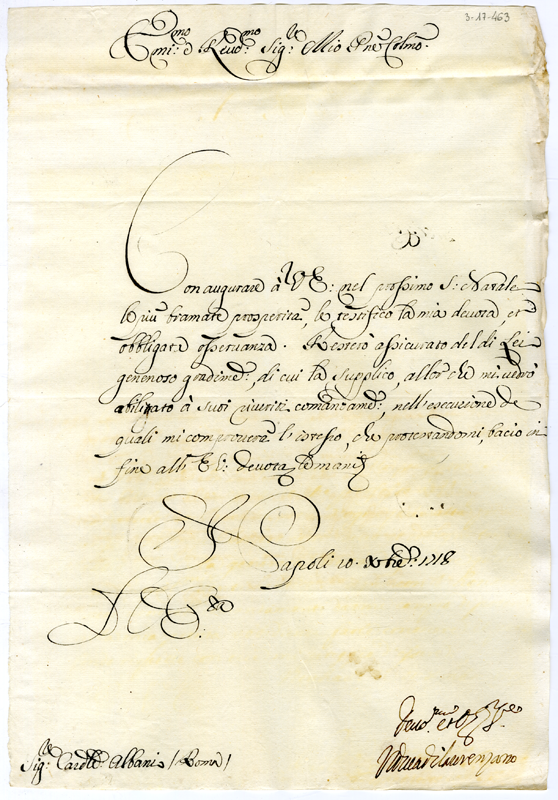 3-17-463
Emi:mo e Reu:mo Sig:re Mio P:ne Colmo.
Con augurare à V E: nel prossimo S: Natale
le più bramate prosperità, le testifico la mia devota et
obbligata osservanza. Resterò assicurato del di Lei
generoso gradim:to, di cui la supplico, allor che mi vedrò
abilitato à suoi riveriti comandam:ti, nell'esecuzione de
quali mi comproverà l'istesso, che protestandomi, bacio in
fine all' E V: devotam:te le mani
Napoli 10. Xbre: 1718
D V E:za
Sig:re Card:le Albani / Roma /
Il Duca di Laurenzano